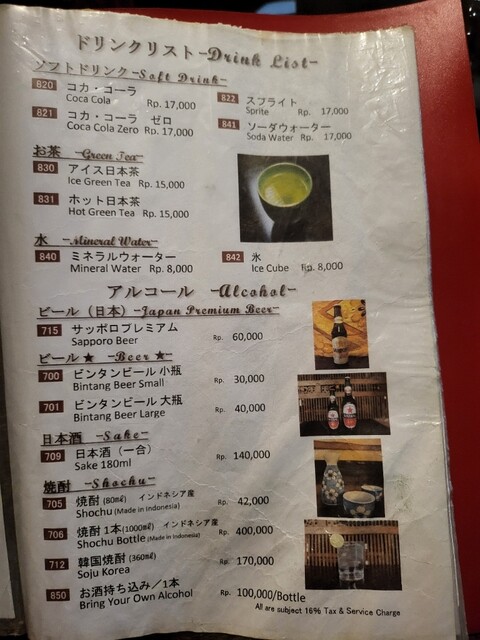 ドリンクリスト-Drink List-
ソフトドリンク-Soft Drink-
820 コカ・コーラ
Coca Cola Rp. 17,000
821 コカ・コーラ ゼロ
Coca Cola Zero Rp. 17,000
822 スプライト
Sprite Rp. 17,000
841 ソーダウォーター
Soda Water Rp. 17,000
お茶 -Green Tea-
830 アイス日本茶
Ice Green Tea Rp. 15,000
831 ホット日本茶
Hot Green Tea Rp. 15,000
水 -Mineral Water-
840 ミネラルウォーター
Mineral Water Rp. 8,000
842 氷
Ice Cube Rp. 8,000
アルコール -Alcohol-
ビール（日本）-Japan Premium Beer-
715 サッポロプレミアム
Sapporo Beer Rp. 60,000
ビール★ -Beer★-
700 ビンタンビール 小瓶
Bintang Beer Small Rp. 30,000
701 ビンタンビール 大瓶
Bintang Beer Large Rp. 40,000
日本酒 -Sake-
709 日本酒（一合）
Sake 180ml Rp. 140,000
焼酎 -Shochu-
705 焼酎 (80㎖) インドネシア産
Shochu (Made in Indonesia) Rp. 42,000
706 焼酎 1本(1000㎖) インドネシア産
Shochu Bottle (Made in Indonesia) Rp. 400,000
712 韓国焼酎 (360㎖)
Soju Korea Rp. 170,000
850 お酒持ち込み／1本
Bring Your Own Alcohol Rp. 100,000/Bottle
All are subject 16% Tax & Service Charge